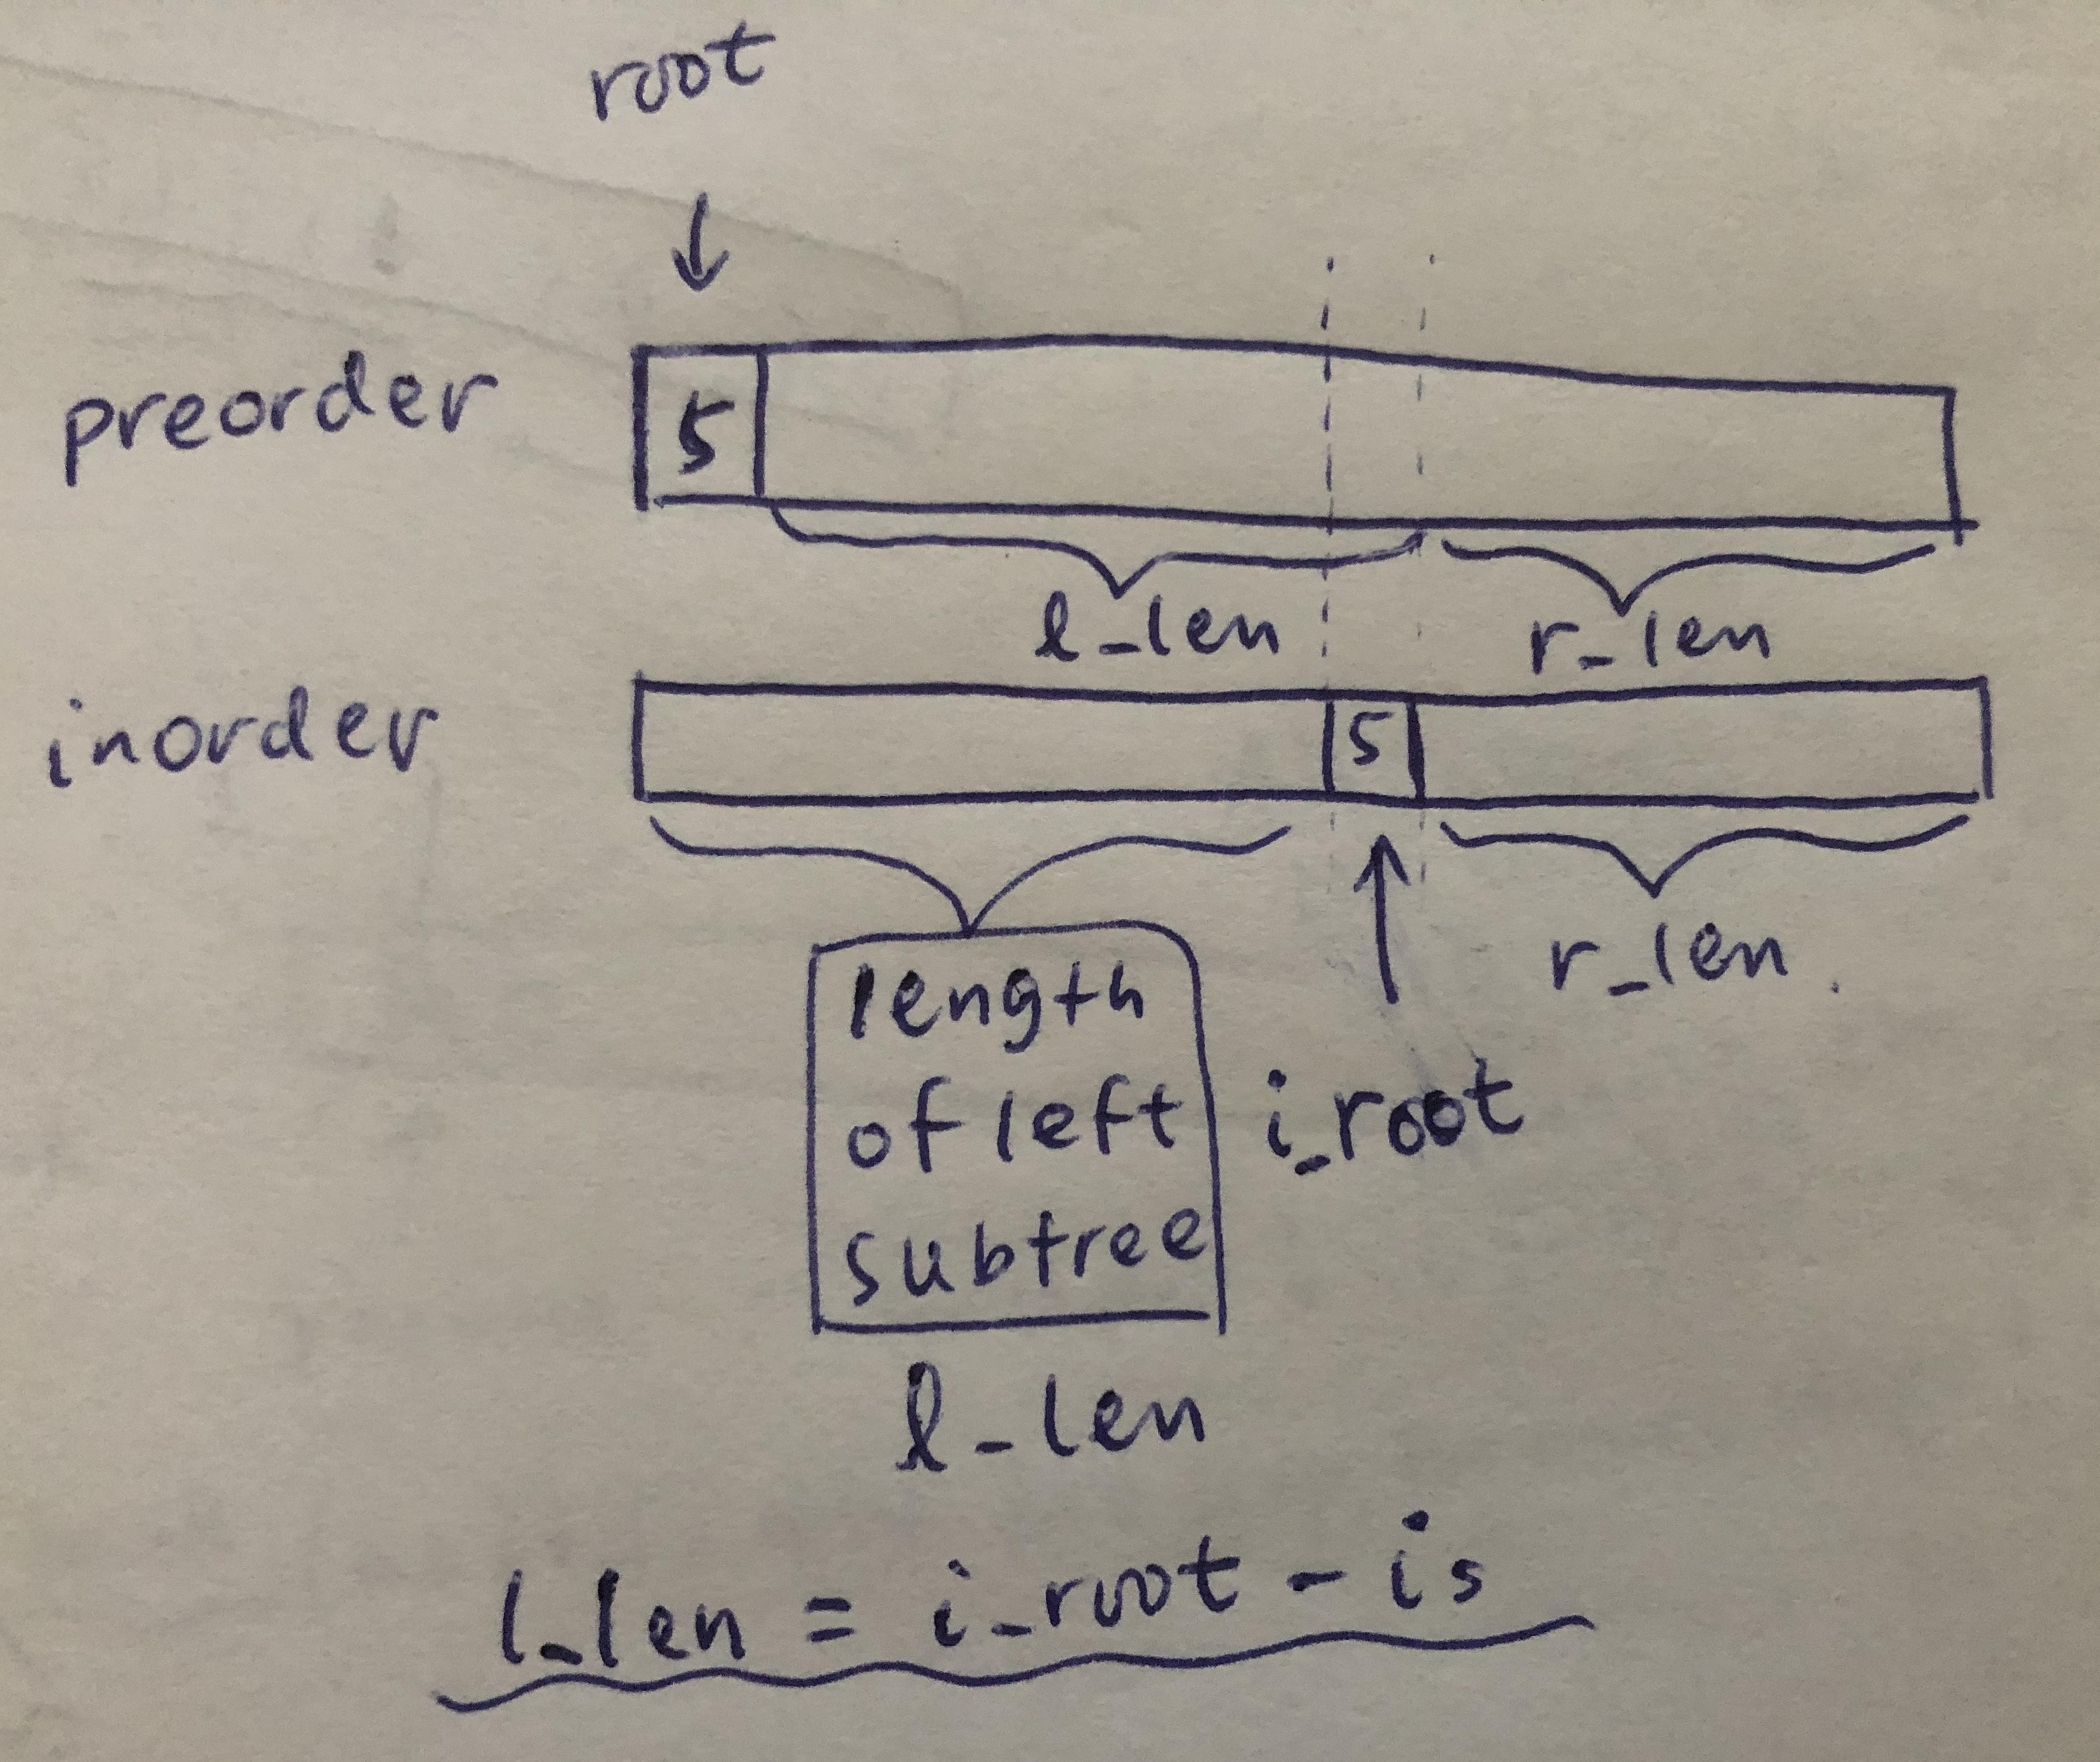 root
↓
preorder
5
l_len
r_len
inorder
5
r_len.
length
of left
subtree
i_root
l_len
l_len = i_root - is